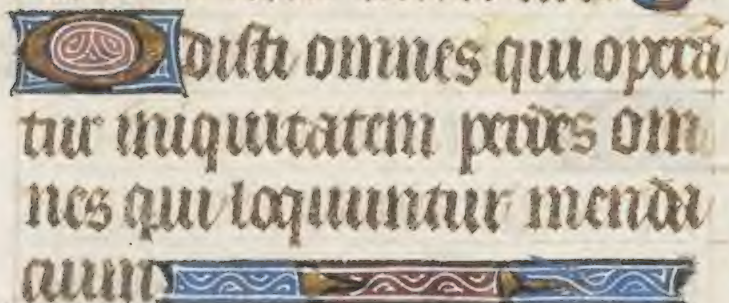 Odisti omnes qui opera
tur iniquitatem perdes om
nes qui loquuntur menda
cium